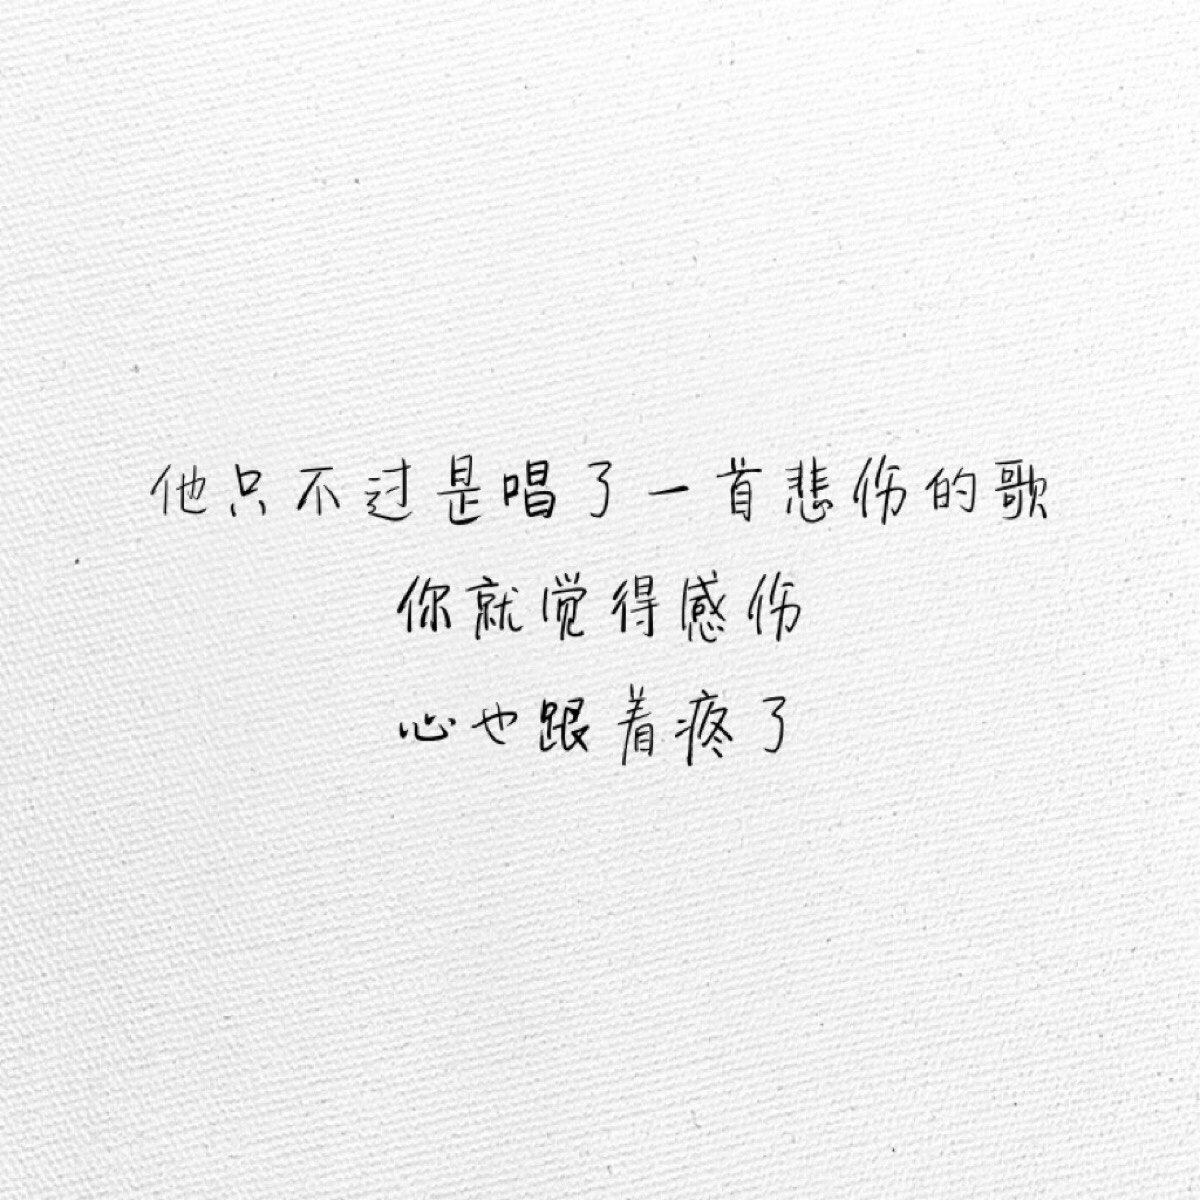 他只不过是唱了一首悲伤的歌
你就觉得感伤
心也跟着疼了